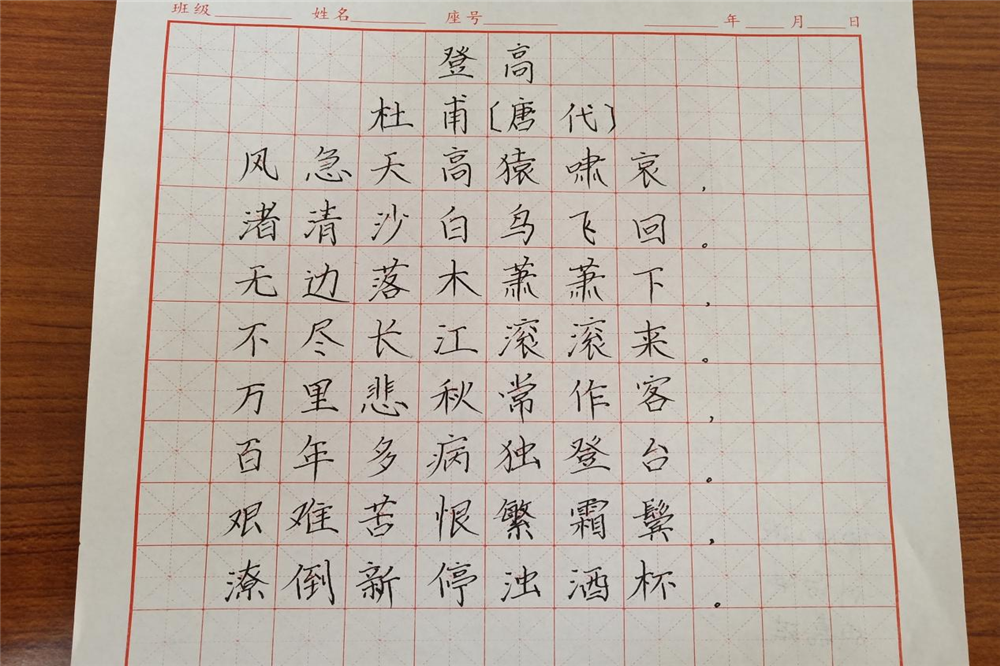 班级 姓名 座号 年 月 日
登高
杜甫〔唐代〕
风急天高猿啸哀，
渚清沙白鸟飞回。
无边落木萧萧下，
不尽长江滚滚来。
万里悲秋常作客，
百年多病独登台。
艰难苦恨繁霜鬓，
潦倒新停浊酒杯。